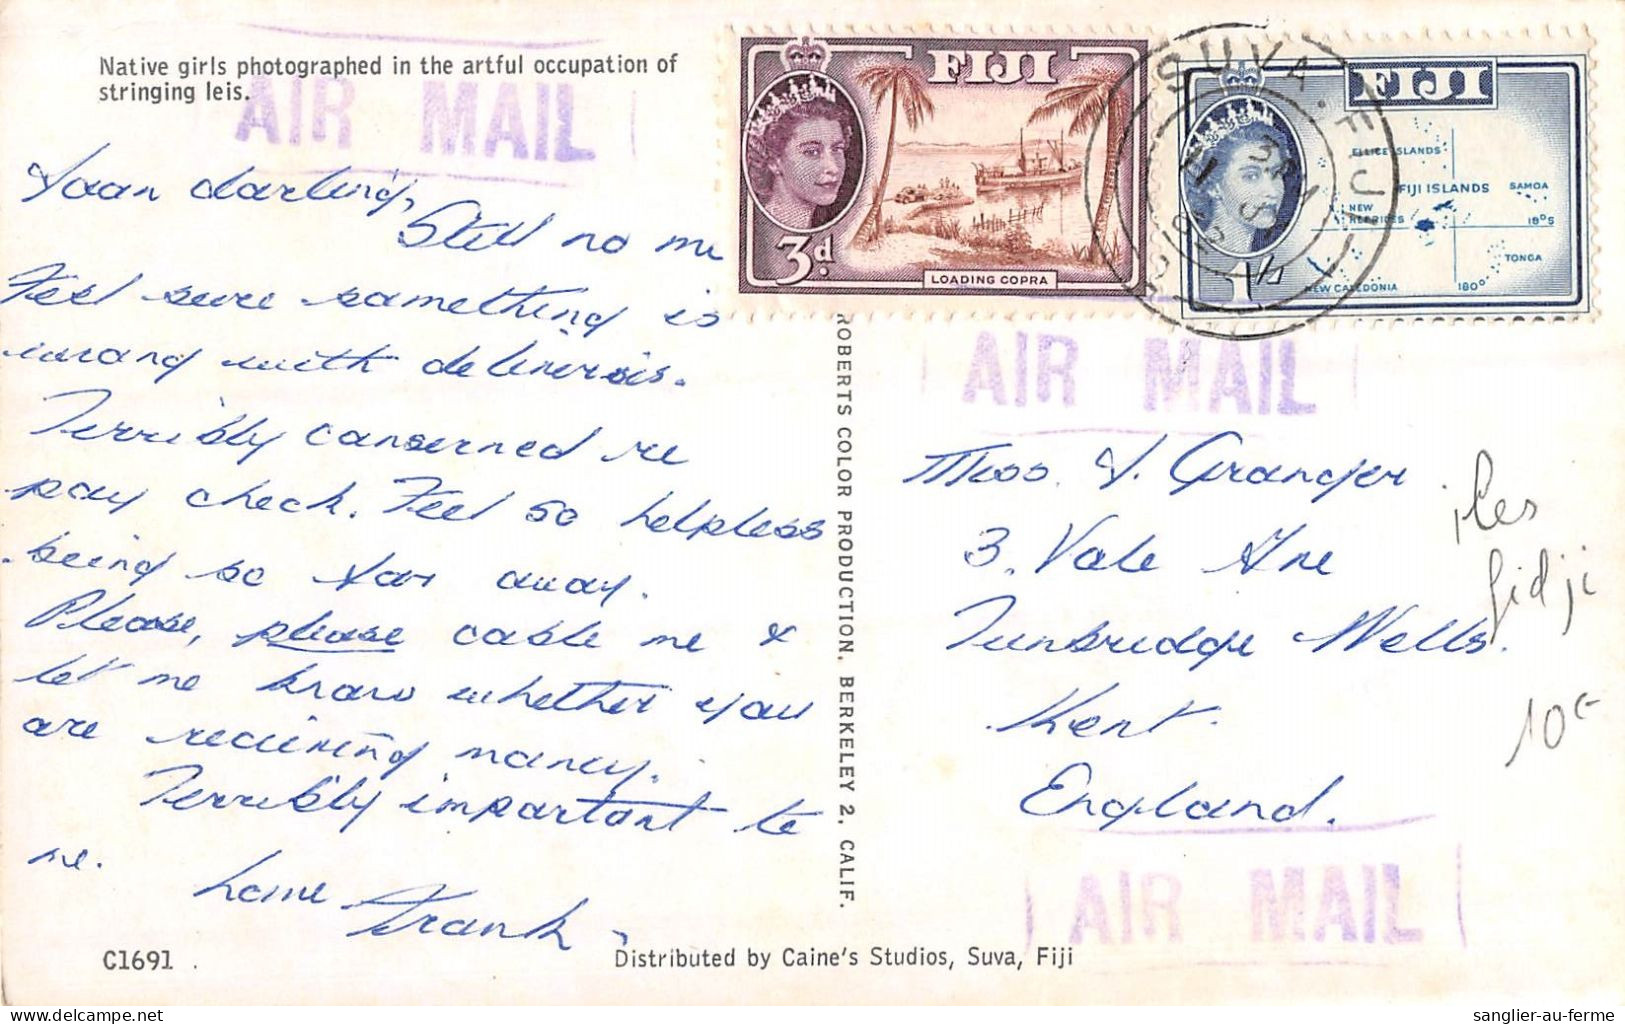 Native girls photographed in the artful occupation of
stringing leis.
AIR MAIL
Joan darling,
Still no
Feel sure something is
wrong with deliveries.
Terribly conserned re
pay check. Feel so helpless
being so far away.
Please, please cable me &
let me know whether you
are recieving money.
Terribly important to
me.
Love
Frank
C1691
Distributed by Caine's Studios, Suva, Fiji
ROBERTS COLOR PRODUCTION. BERKELEY 2. CALIF.
FIJI
3d.
LOADING COPRA
SUVA. FIJI
FIJI
ELLICE ISLANDS
FIJI ISLANDS
SAMOA
NEW
HEBRIDES
18°S
TONGA
NEW CALEDONIA
180°
1/-
AIR MAIL
J. Granger
3, Vale Ave
Tunbridge Wells.
Kent.
England.
AIR MAIL
iles
fidji
10€
delcampe.net
sanglier-au-ferme